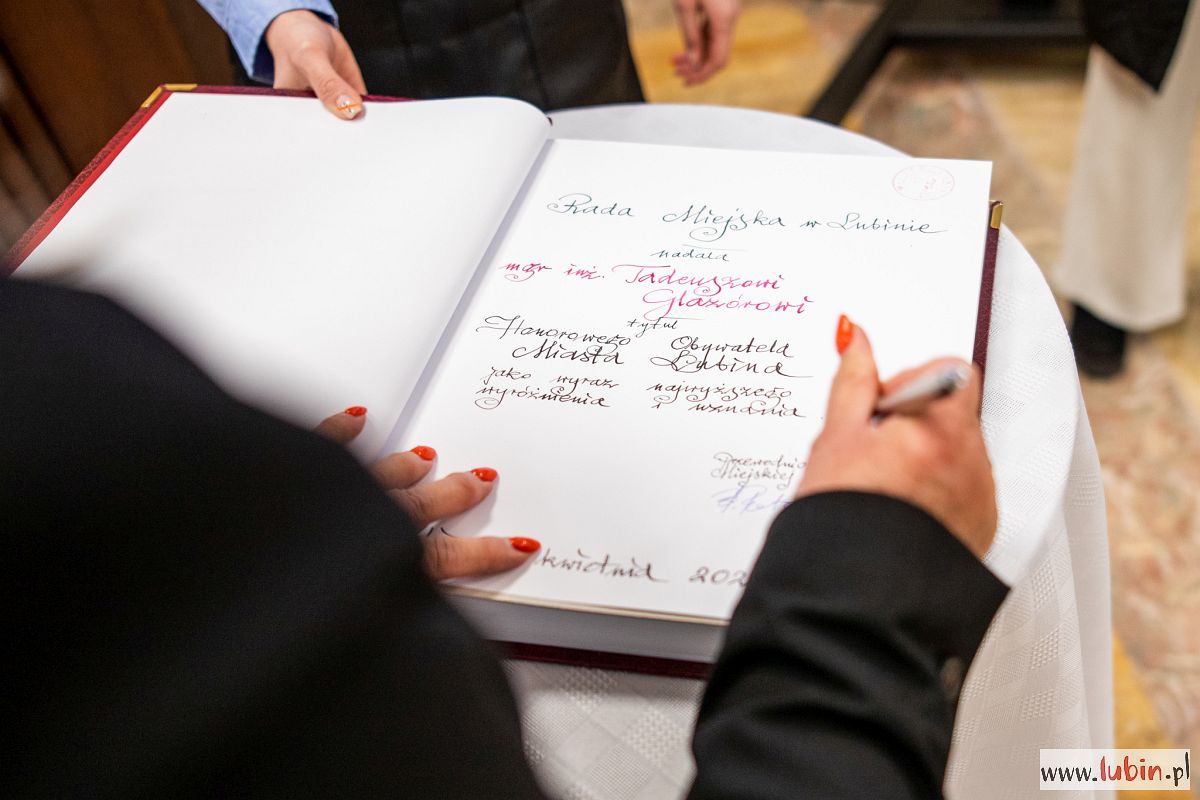 Rada Miejska w Lubinie
nadała
mgr inż. Tadeuszowi
Glazórowi
tytuł
Honorowego Obywatela
Miasta Lubina
jako wyraz najwyższego
wyróżnienia i uznania
Miejskiej
kwietnia 202
www.lubin.pl